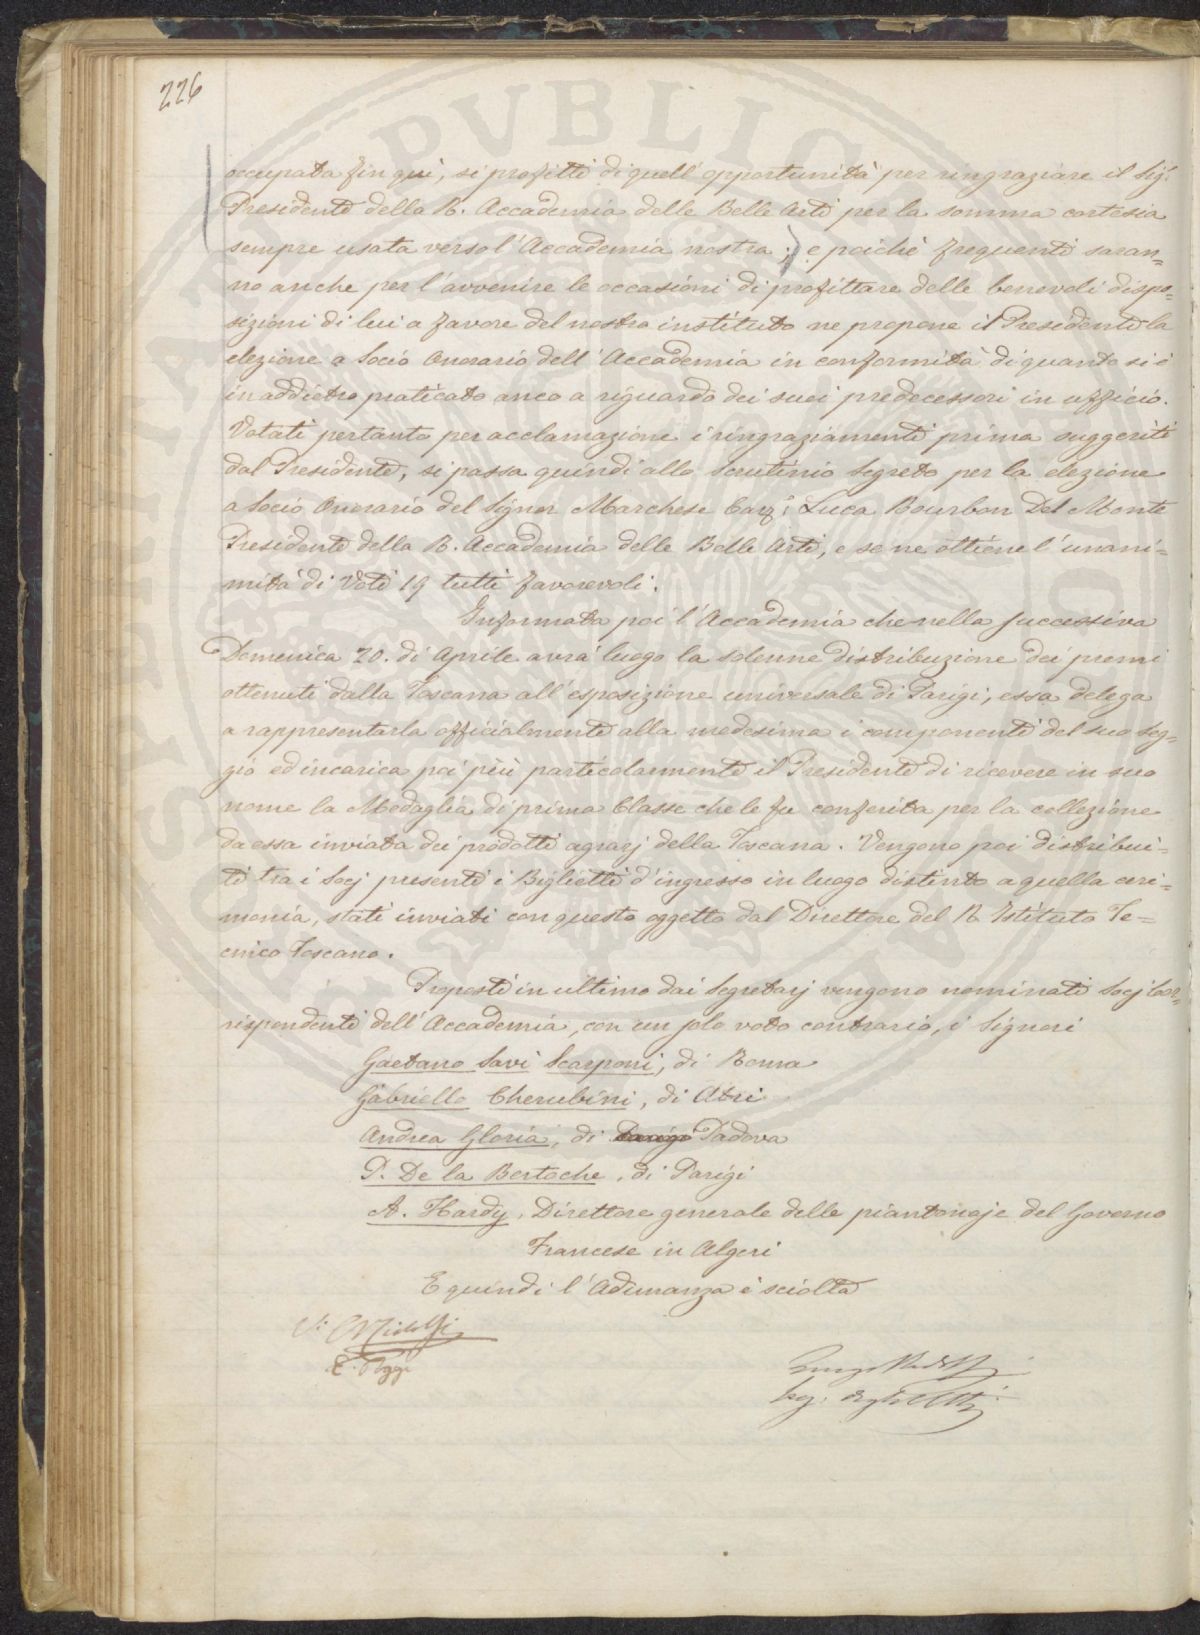 226
occupata fin quì, si profitti di quell'opportunità per ringraziare il Sig.r
Presidente della R. Accademia delle Belle Arti per la somma cortesia
sempre usata verso l'Accademia nostra; e poichè frequenti saran=
no anche per l'avvenire le occasioni di profittare delle benevoli dispo=
sizioni di lui a favore del nostro instituto ne propone il Presidente la
elezione a Socio Onorario dell'Accademia in conformità di quanto si è
in addietro praticato anco a riguardo dei suoi predecessori in ufficio.
Votati pertanto per acclamazione i ringraziamenti prima suggeriti
dal Presidente, si passa quindi allo scrutinio segreto per la elezione
a Socio Onorario del Signor Marchese Luca Bourbon Del Monte
Presidente della R. Accademia delle Belle Arti, e se ne ottiene l'unani=
mità di Voti 19 tutti favorevoli.
Informata poi l'Accademia che nella successiva
Domenica 20. di Aprile avrà luogo la solenne distribuzione dei premi
ottenuti dalla Toscana all'esposizione universale di Parigi, essa delega
a rappresentarla officialmente alla medesima i componenti del suo Seg=
gio ed incarica poi più particolarmente il Presidente di ricevere in suo
nome la Medaglia di prima Classe che le fu conferita per la collezione
da essa inviata dei prodotti agrarj della Toscana. Vengono poi distribui=
ti tra i Socj presenti i Biglietti d'ingresso in luogo distinto a quella ceri=
monia, stati inviati con questo oggetto dal Direttore del R. Istituto Te=
cnico Toscano.
Proposti in ultimo dai Segretarj vengono nominati Socj Cor=
rispondenti dell'Accademia, con un solo voto contrario, i Signori
Gaetano Savi Scarponi, di Roma
Gabriello Cherubini, di Atri
Andrea Gloria, di Padova
P. De la Bertoche, di Parigi
A. Hardy, Direttore generale delle piantonaje del Governo
Francese in Algeri
E quindi l'Adunanza è sciolta
V: C Ridolfi
E. Poggi
Seg. degli Atti
PVBLIC